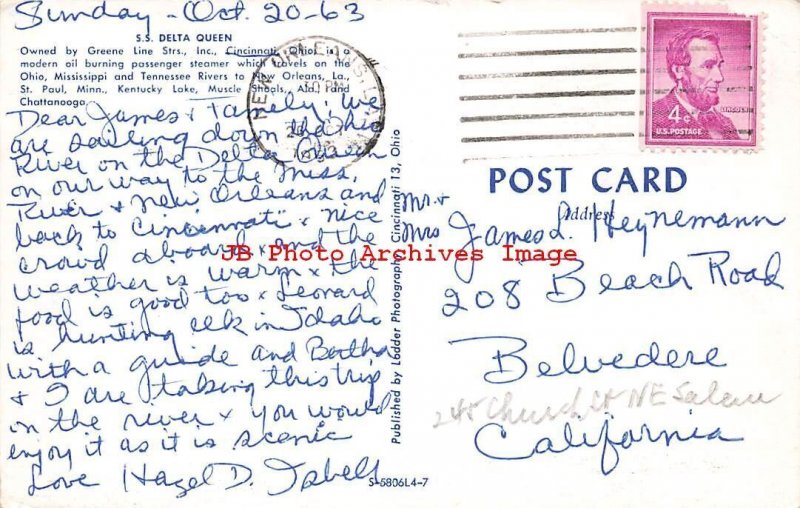 Sunday - Oct. 20-63
S.S. DELTA QUEEN
Owned by Greene Line Strs., Inc., Cincinnati, Ohio, is a
modern oil burning passenger steamer which travels on the
Ohio, Mississippi and Tennessee Rivers to New Orleans, La.,
St. Paul, Minn., Kentucky Lake, Muscle Shoals, Ala. and
Chattanooga.
Dear James & Family: We
are sailing down the Ohio
River on the Delta Queen
on our way to the Miss.
River & New Orleans and
back to Cincinnati & nice
crowd aboard & and the
weather is warm & the
food is good too & Leonard
is hunting elk in Idaho
with a guide and Bertha
& I are taking this trip
on the river & you would
enjoy it as it is scenic
Love Hazel D. Isbell
NEW ORLEANS, LA.
4¢
LINCOLN
U.S. POSTAGE
POST CARD
Address
Mr. &
Mrs James L. Heynemann
208 Beach Road
Belvedere
245 Church St NE Salem
California
Published by Lodder Photography, Cincinnati 13, Ohio
S-5806L4-7
JB Photo Archives Image